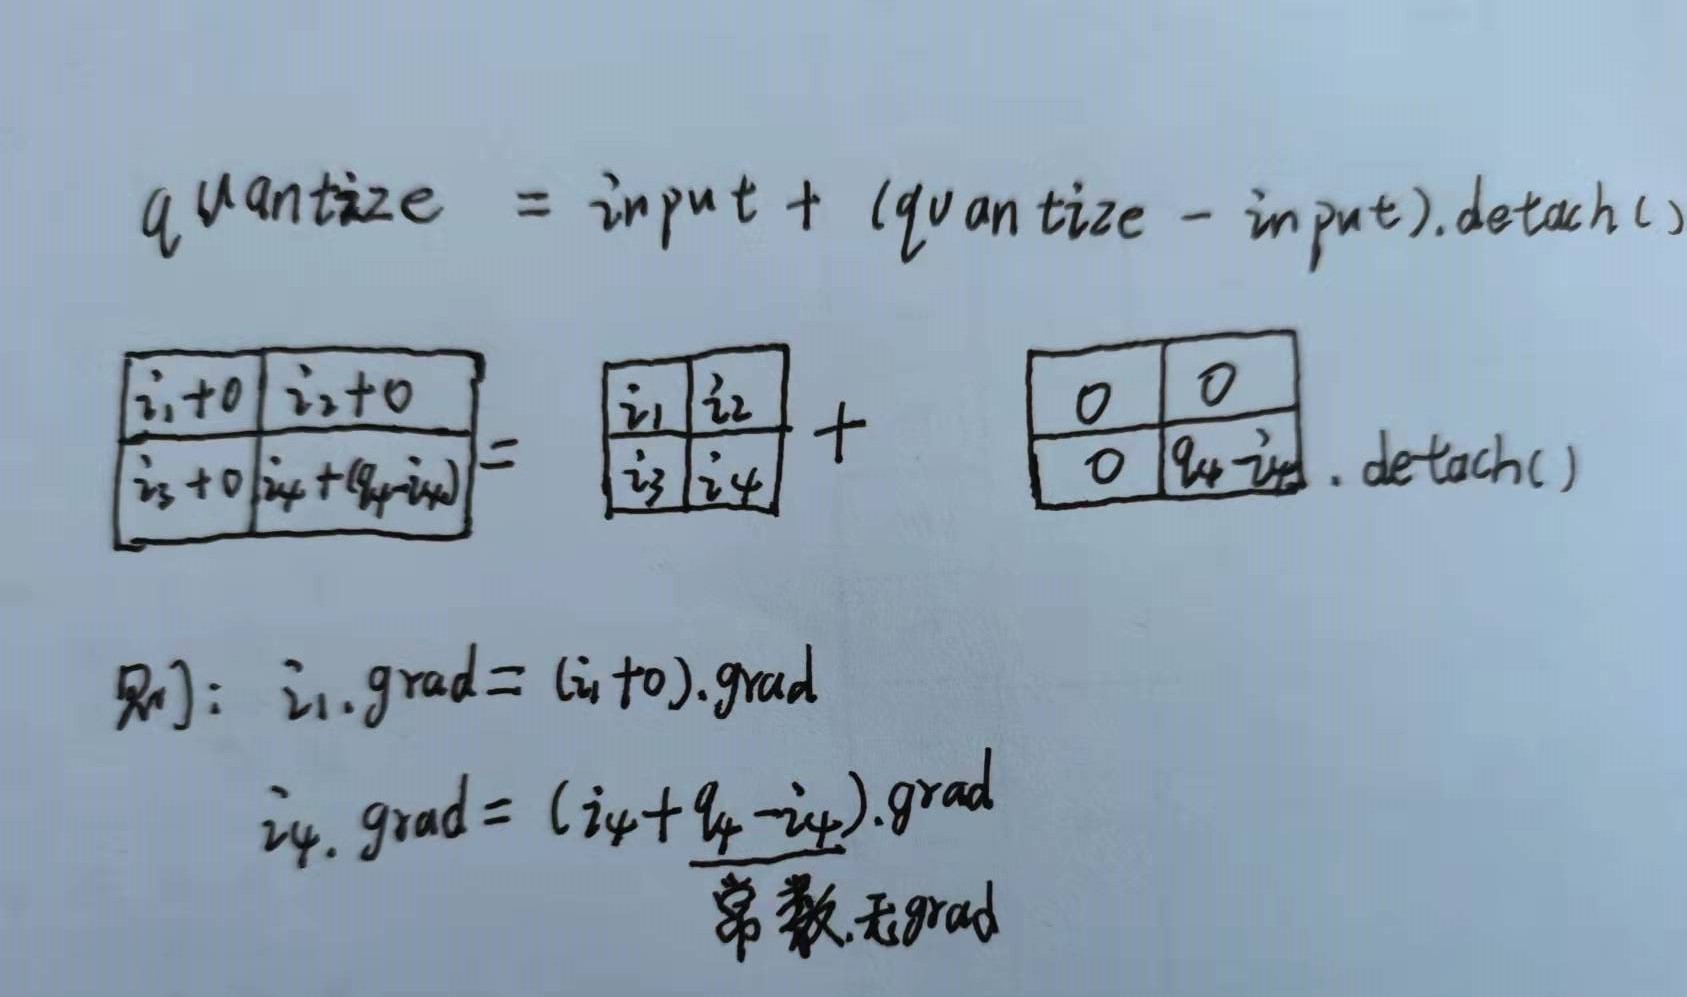 quantize = input + (quantize - input).detach()
i₁+0 i₂+0 = i₁ i₂ + 0 0
i₃+0 i₄+(q₄-i₄) i₃ i₄ 0 q₄-i₄ .detach()
则: i₁.grad = (i₁+0).grad
i₄.grad = (i₄+q₄-i₄).grad
常数.无grad